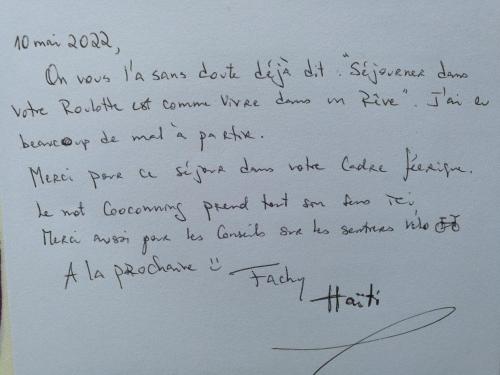 10 mai 2022,
On vous l'a sans doute déjà dit. "Séjourner dans
votre Roulotte est comme vivre dans un Rêve". J'ai eu
beaucoup de mal à partir.
Merci pour ce séjour dans votre Cadre féerique.
Le mot Coocooning prend tout son sens ici
Merci aussi pour les Conseils sur les sentiers vélo
A la prochaine
Fachy
Haïti